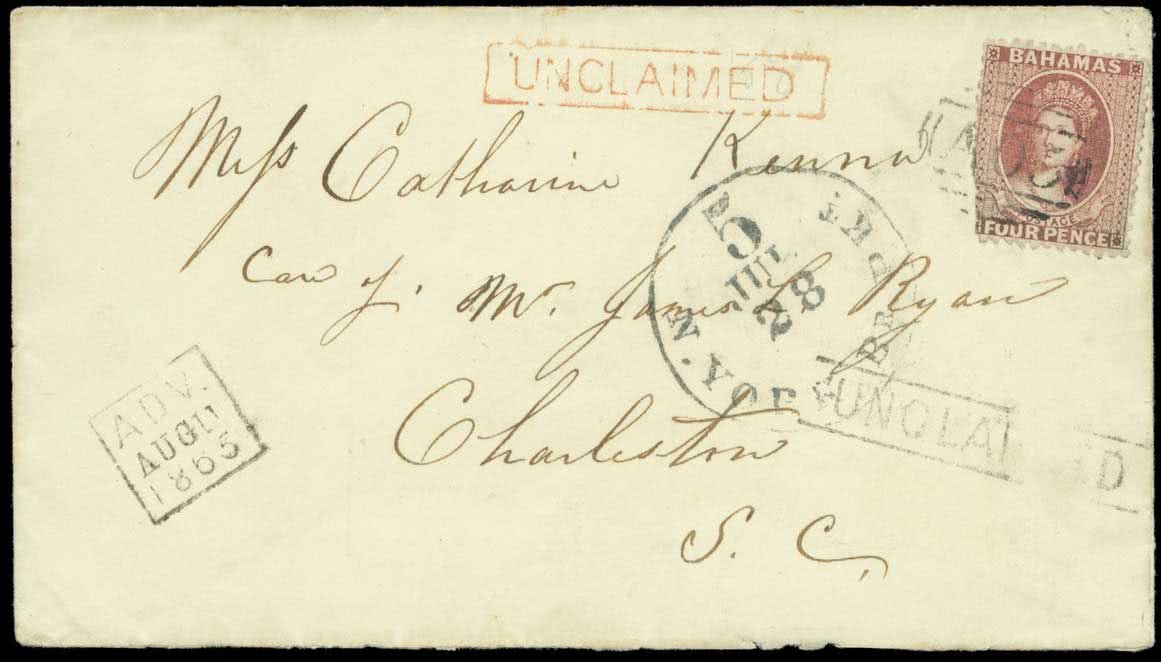 UNCLAIMED
BAHAMAS
POSTAGE
FOUR PENCE
Miss Catharine Kenna
Care of. Mr. James Ryan
Charleston
S. C.
N. YORK BR PKT
5
JUL
28
UNCLAI ED
ADV.
AUG 11
1865